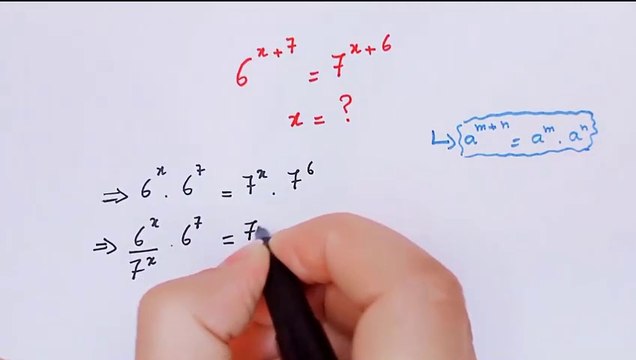 6^{x+7} = 7^{x+6}
x = ?
↳ a^{m+n} = a^m . a^n
⇒ 6^x . 6^7 = 7^x . 7^6
⇒ 6^x/7^x . 6^7 = 7